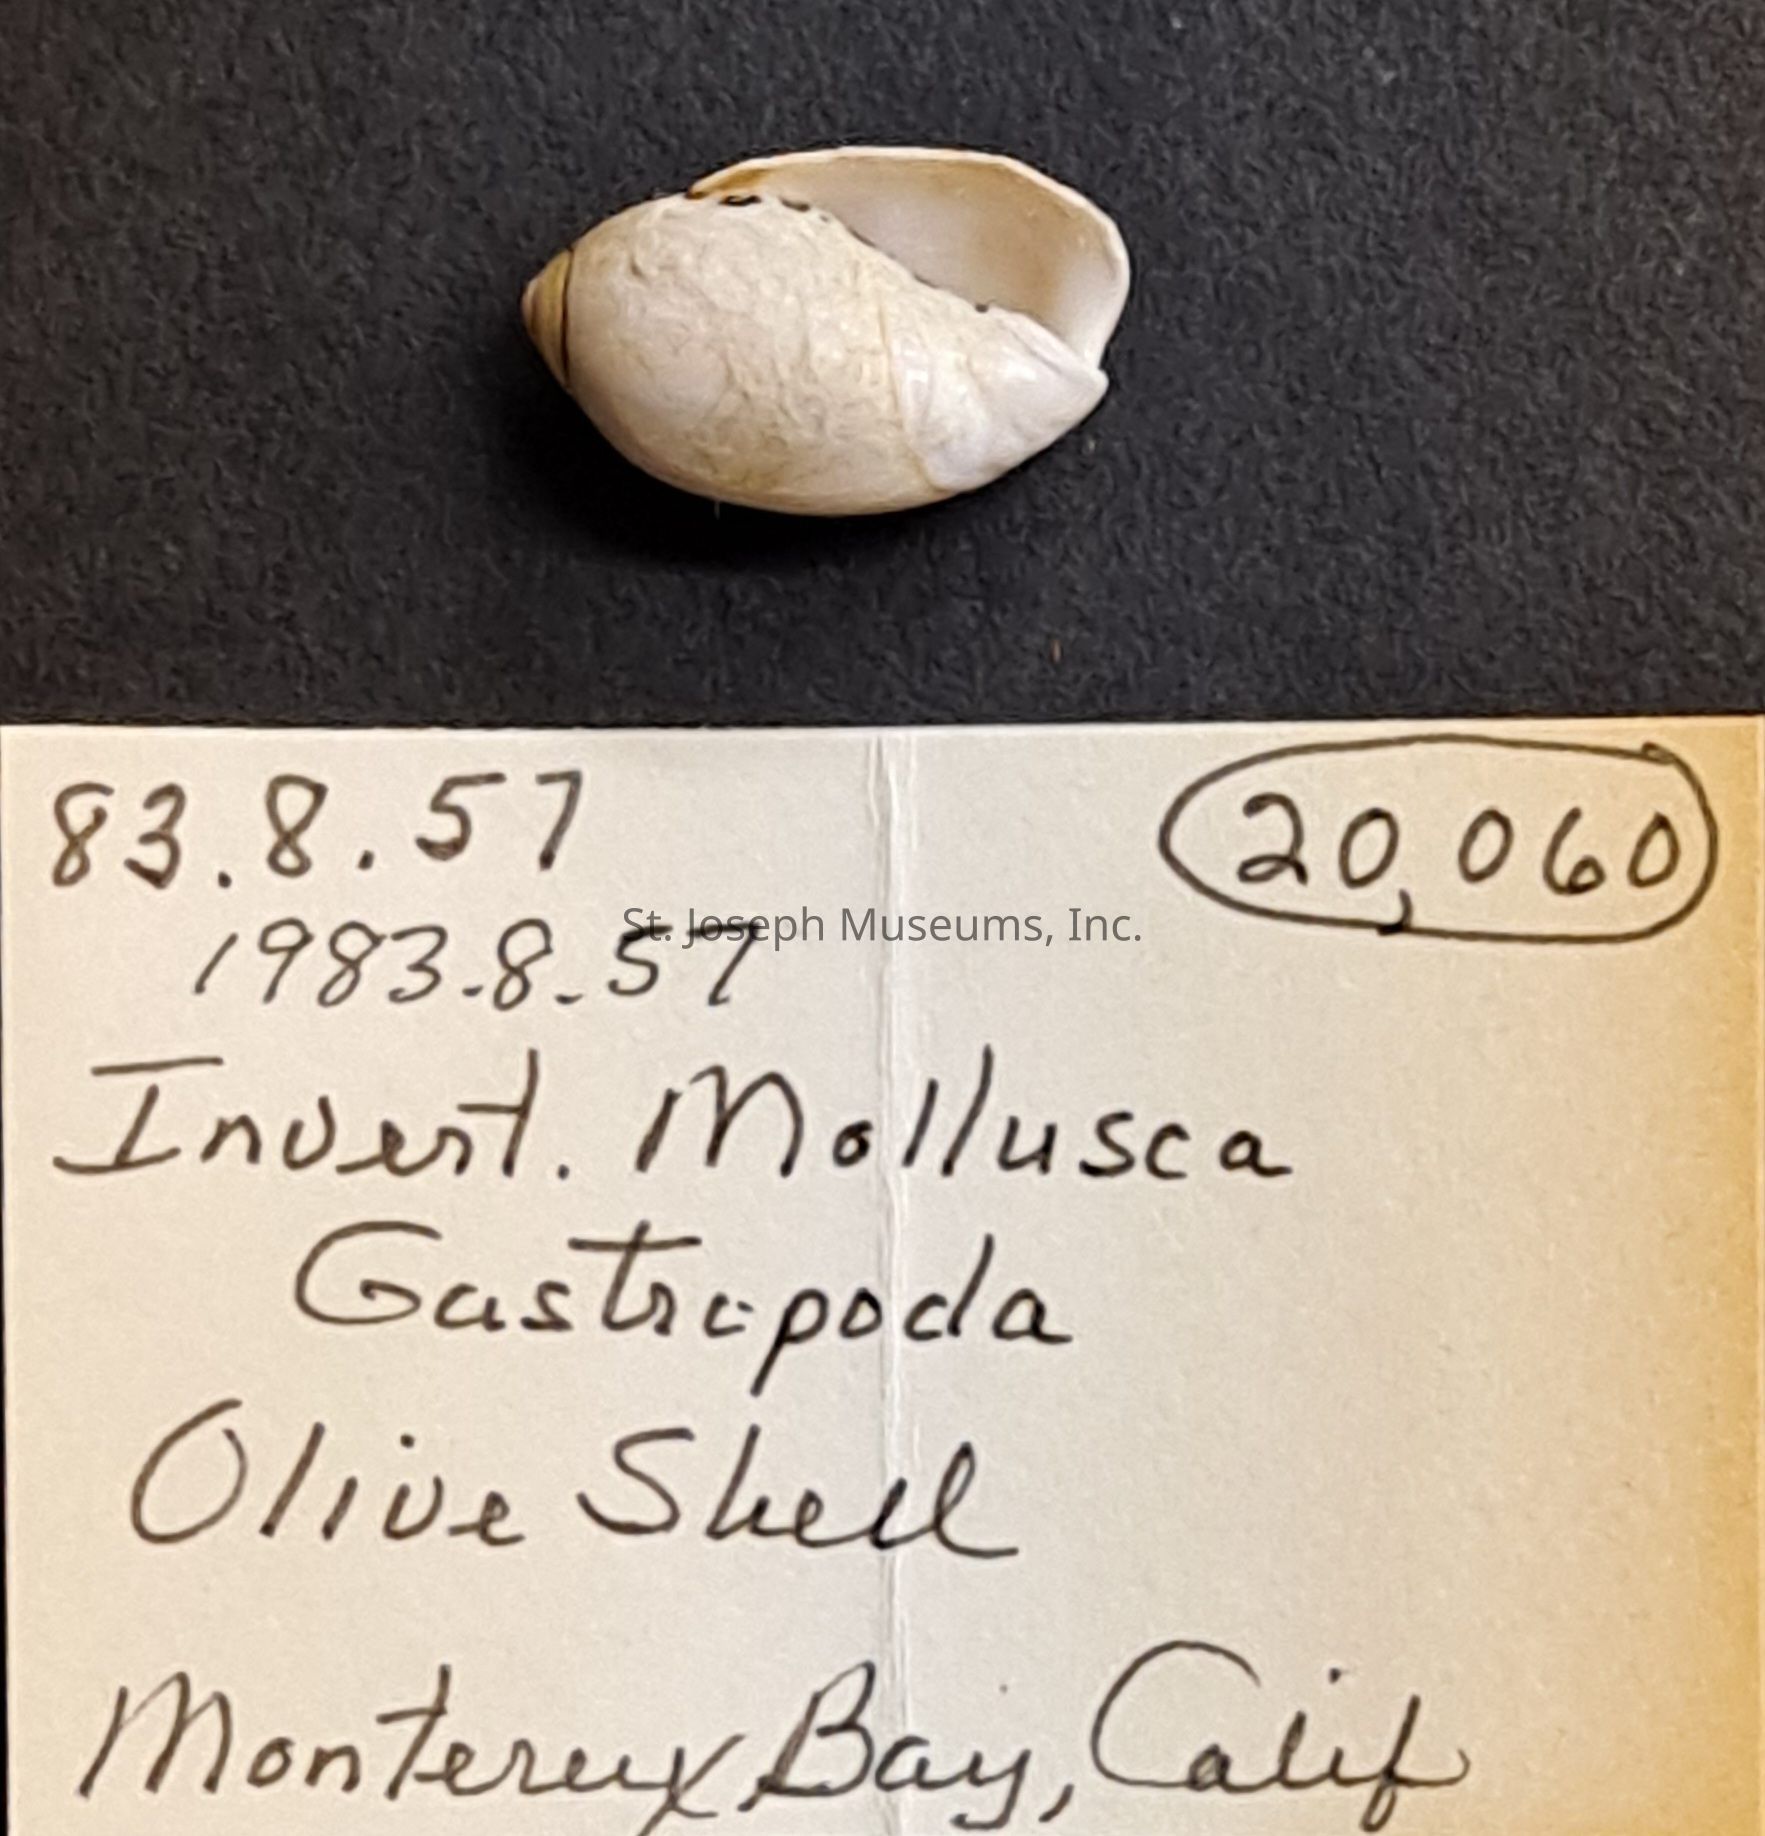 83.8.57
20,060
St. Joseph Museums, Inc.
1983.8.57
Invert. Mollusca
Gastropoda
Olive Shell
Monterey Bay, Calif